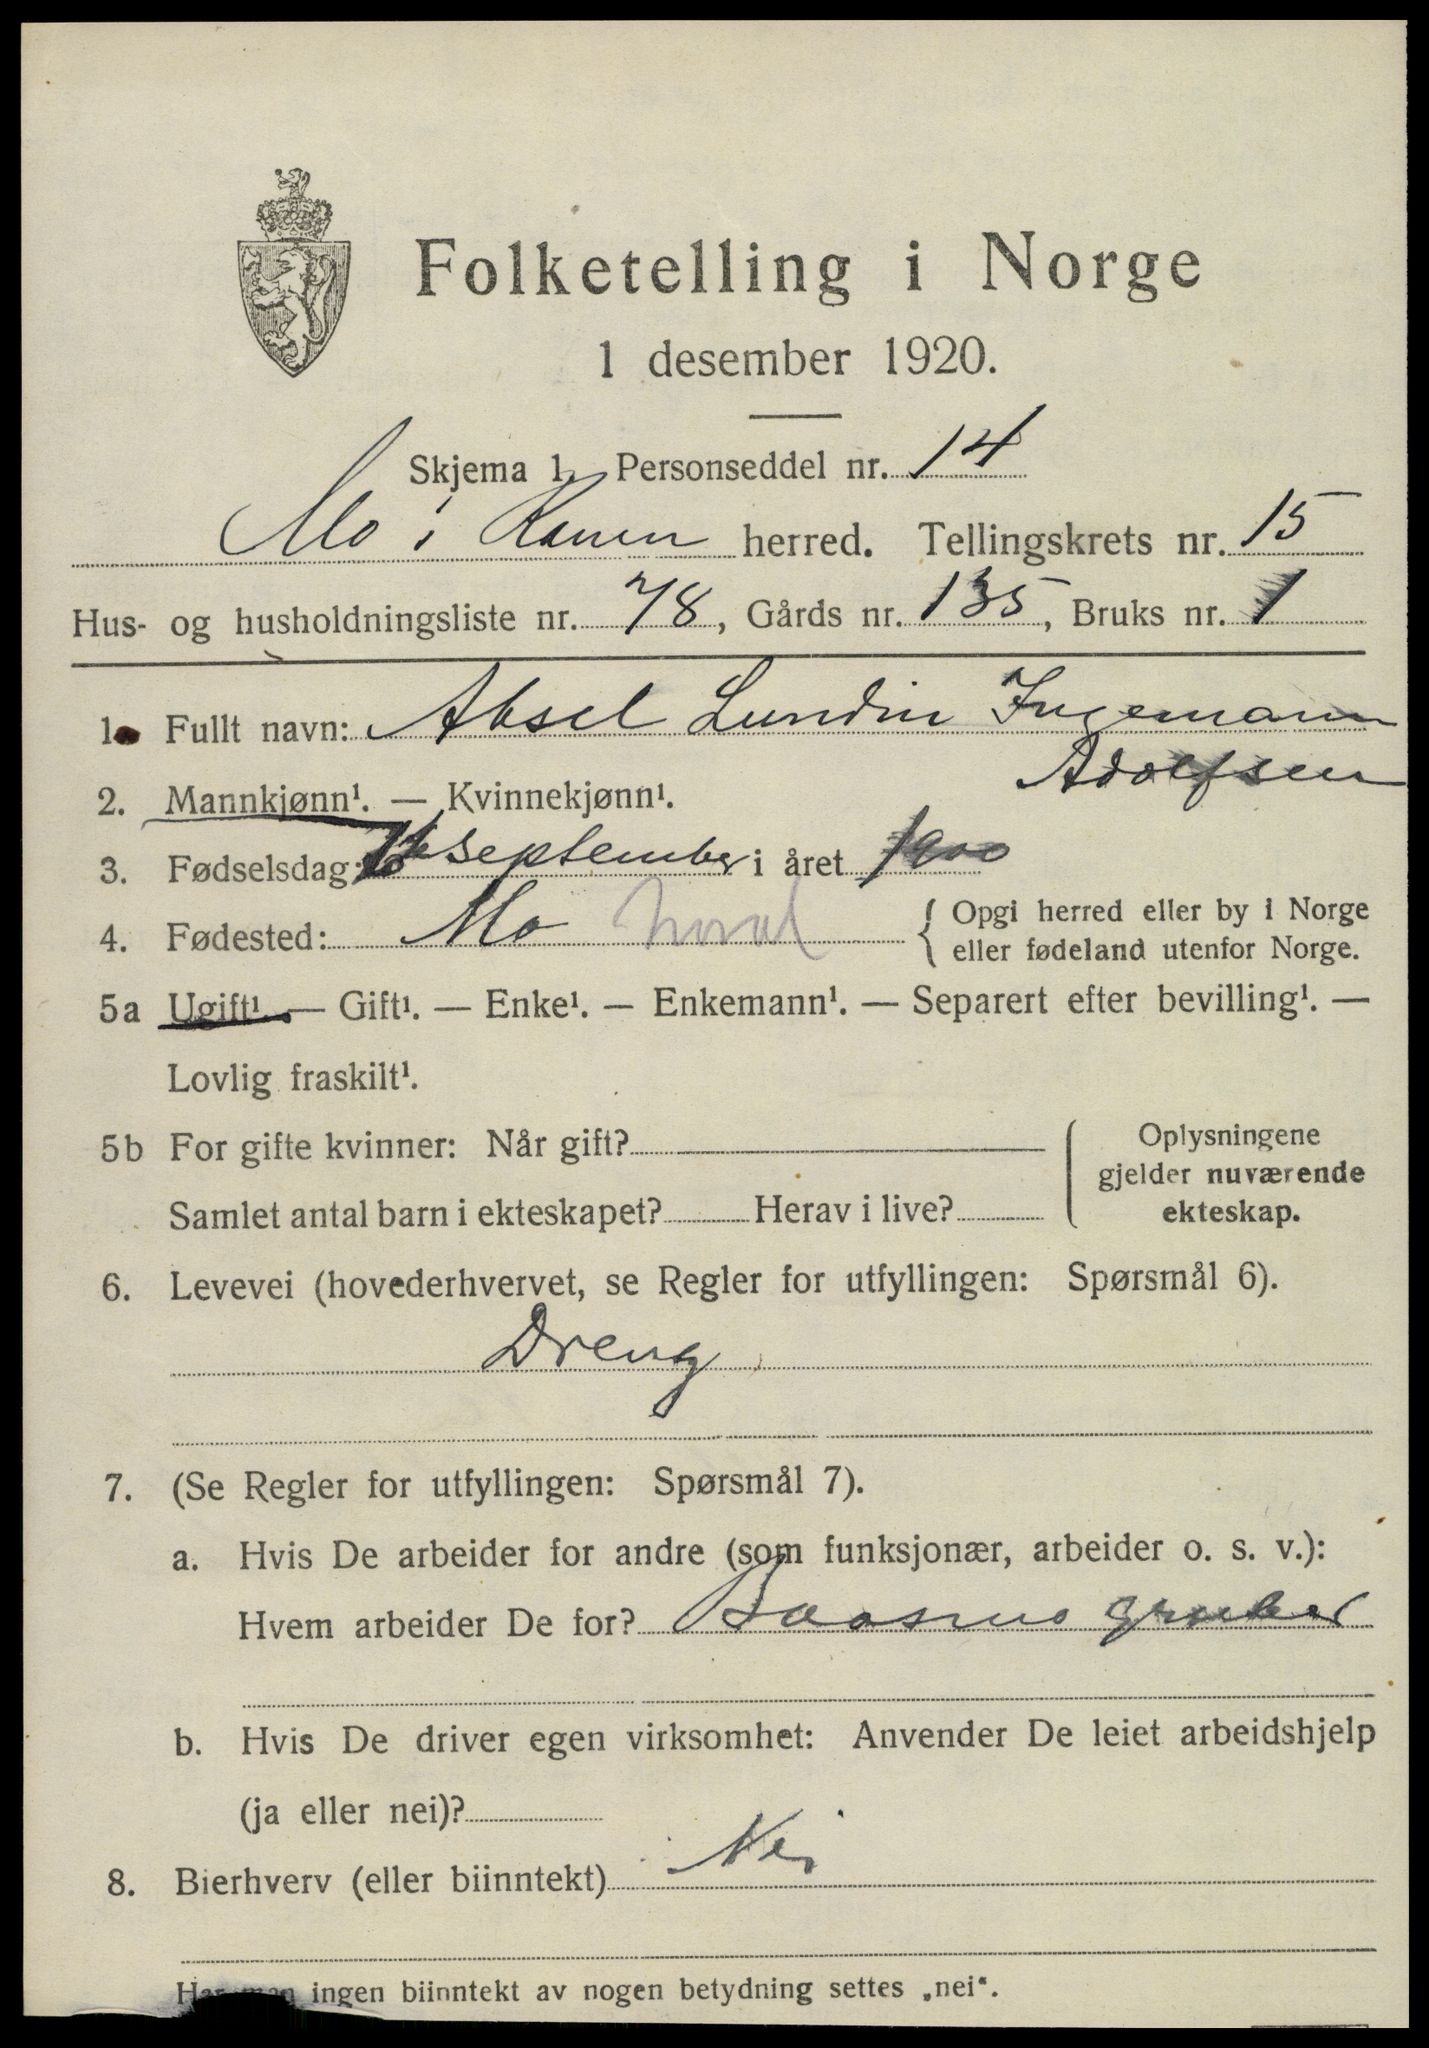 Folketelling i Norge
1 desember 1920.
Skjema 1. Personseddel nr. 14
Mo i Ranen herred. Tellingskrets nr. 15
Hus- og husholdningsliste nr. 78, Gårds nr. 135, Bruks nr. 1
1. Fullt navn: Aksel Lundin Ingemann
Adolfsen
2. Mannkjønn¹. — Kvinnekjønn¹.
3. Fødselsdag: september i året 1900
4. Fødested: Mo Nordl { Opgi herred eller by i Norge
eller fødeland utenfor Norge.
5a Ugift¹. — Gift¹. — Enke¹. — Enkemann¹. — Separert efter bevilling¹. —
Lovlig fraskilt¹.
5b For gifte kvinner: Når gift?
Samlet antal barn i ekteskapet? Herav i live?
Oplysningene
gjelder nuværende
ekteskap.
6. Levevei (hovederhvervet, se Regler for utfyllingen: Spørsmål 6).
Dreng
7. (Se Regler for utfyllingen: Spørsmål 7).
a. Hvis De arbeider for andre (som funksjonær, arbeider o. s. v.):
Hvem arbeider De for? Baasmo gruber
b. Hvis De driver egen virksomhet: Anvender De leiet arbeidshjelp
(ja eller nei)?
8. Bierhverv (eller biinntekt) Nei
Har man ingen biinntekt av nogen betydning settes „nei“.